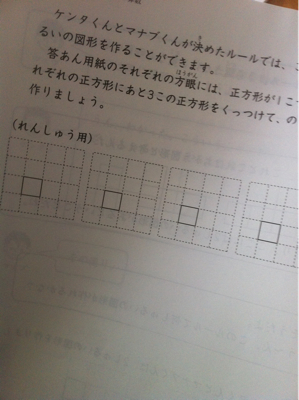 ケンタくんとマナブくんが決めたルールでは、こ
るいの図形を作ることができます。
答あん用紙のそれぞれの方眼には、正方形が1こ
れぞれの正方形にあと3この正方形をくっつけて、の
作りましょう。
(れんしゅう用)